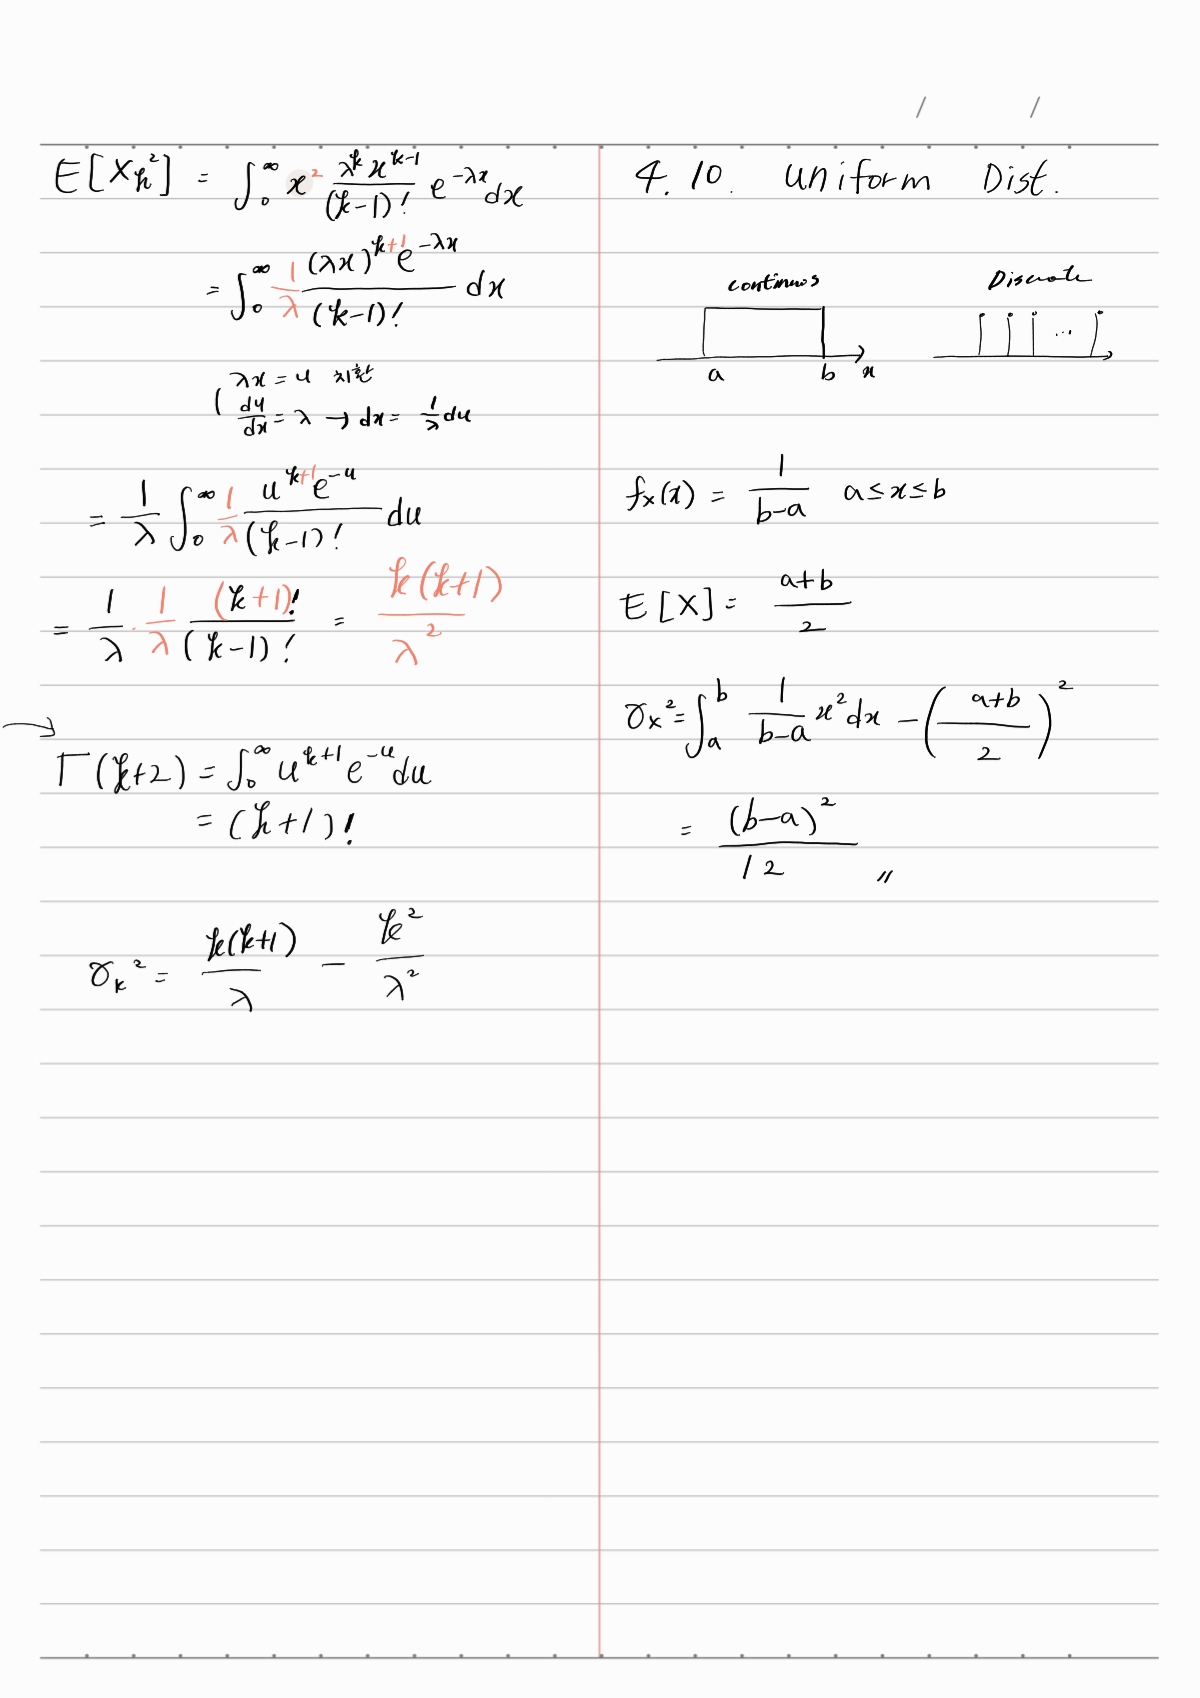 E[X_k²] = ∫₀^∞ x² (λ^k x^(k-1))/((k-1)!) e^(-λx) dx
= ∫₀^∞ (1/λ) ((λx)^(k+1) e^(-λx))/((k-1)!) dx
( λx = u 치환
du/dx = λ → dx = (1/λ) du
= (1/λ) ∫₀^∞ (1/λ) (u^(k+1) e^(-u))/((k-1)!) du
= (1/λ) · (1/λ) ((k+1)!)/((k-1)!) = (k(k+1))/(λ²)
→
Γ(k+2) = ∫₀^∞ u^(k+1) e^(-u) du
= (k+1)!
σ_k² = (k(k+1))/λ - k²/λ²
/ /
4.10. Uniform Dist.
continuos Discrete
...
a b x
f_X(x) = 1/(b-a) a≤x≤b
E[X] = (a+b)/2
σ_X² = ∫_a^b (1/(b-a)) x² dx - ((a+b)/2)²
= (b-a)²/12 〃